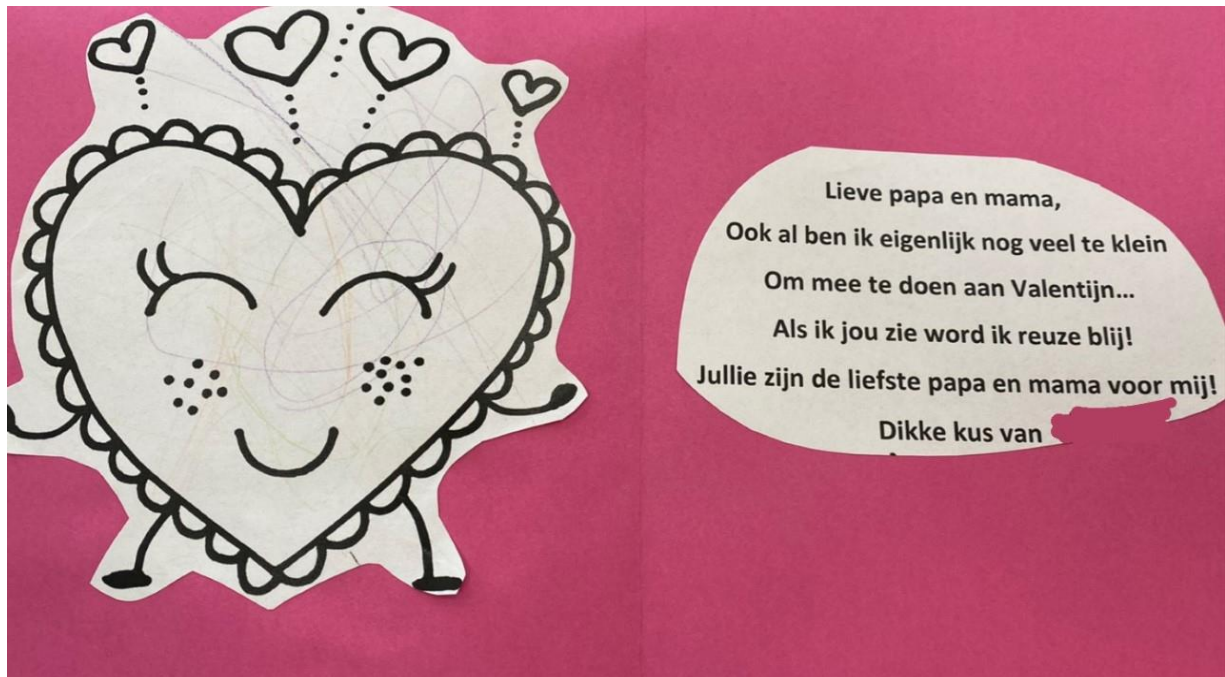 Lieve papa en mama,
Ook al ben ik eigenlijk nog veel te klein
Om mee te doen aan Valentijn...
Als ik jou zie word ik reuze blij!
Jullie zijn de liefste papa en mama voor mij!
Dikke kus van